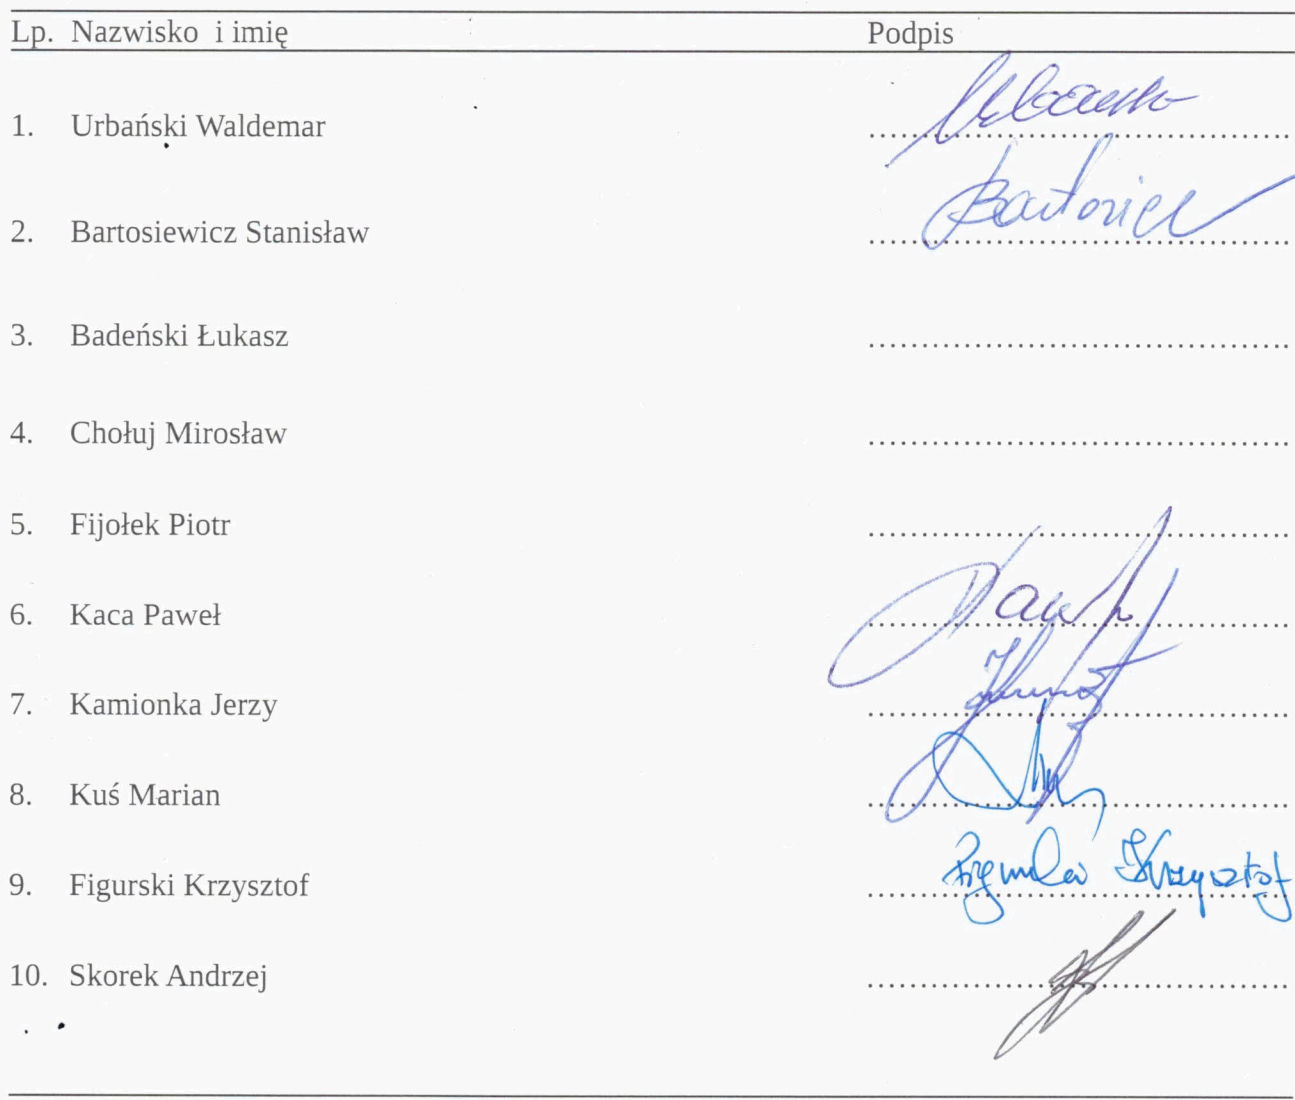 Lp. Nazwisko i imię Podpis
1. Urbański Waldemar
2. Bartosiewicz Stanisław
3. Badeński Łukasz
4. Chołuj Mirosław
5. Fijołek Piotr
6. Kaca Paweł
7. Kamionka Jerzy
8. Kuś Marian
9. Figurski Krzysztof Krzysztof
10. Skorek Andrzej